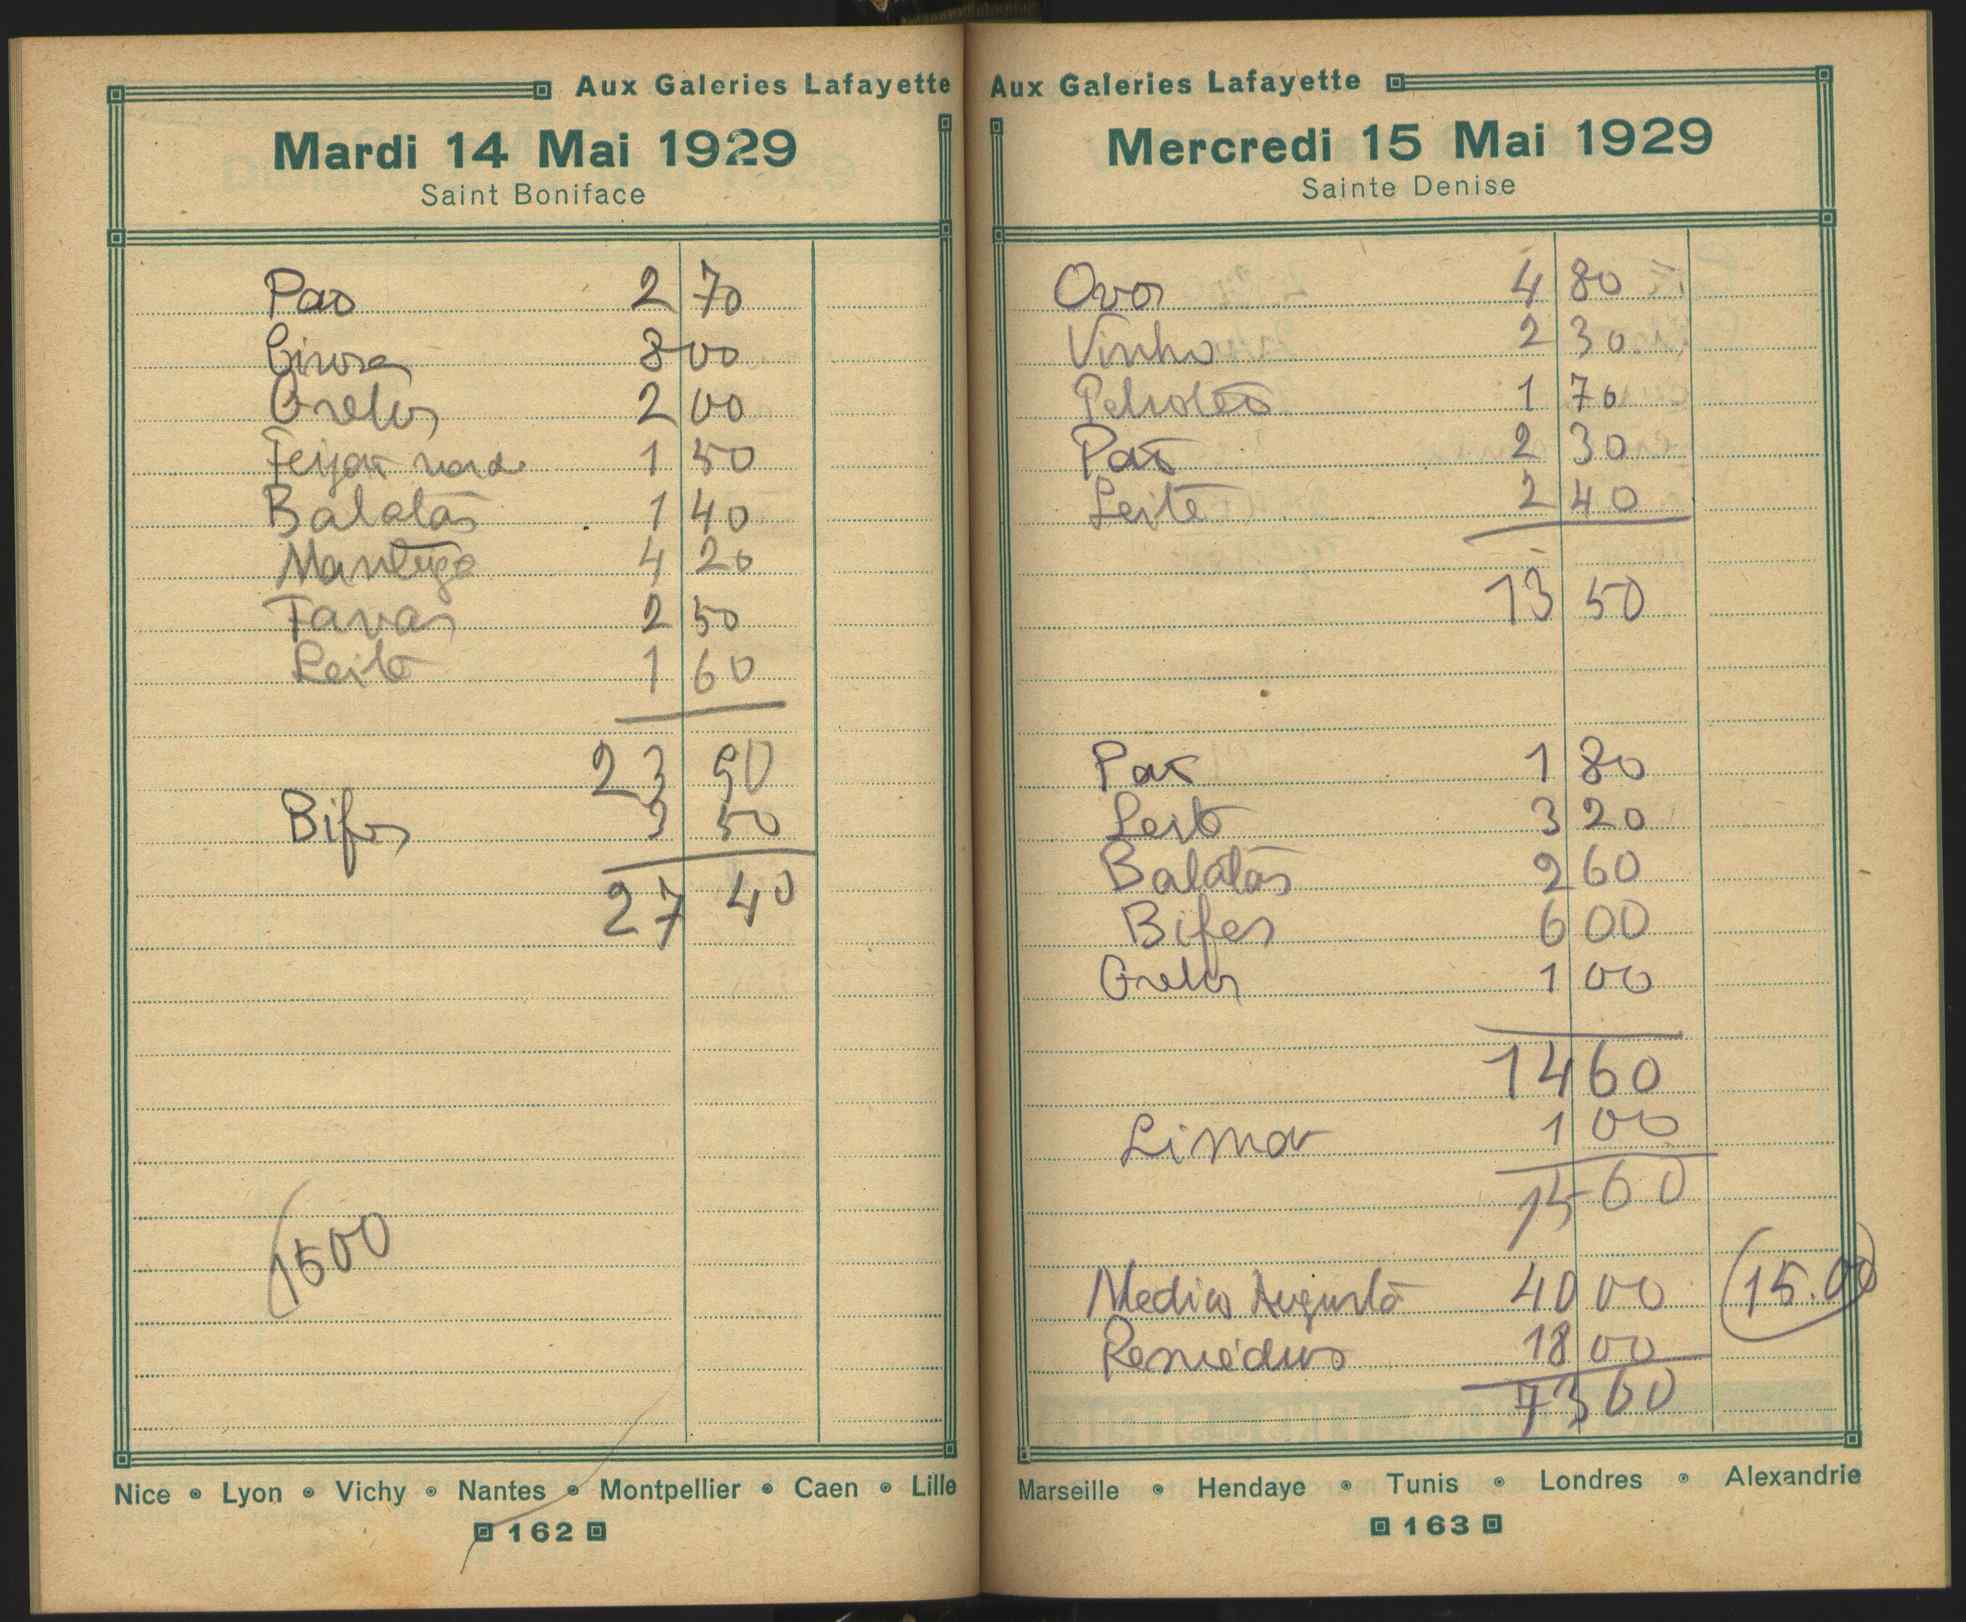 Aux Galeries Lafayette
Mardi 14 Mai 1929
Saint Boniface
Pao 2 70
8 00
Grelos 2 00
Feijao 1 50
Batatas 1 40
Manteiga 4 20
Favas 2 50
Leite 1 60
23 90
Bifes 3 50
27 40
1500
Nice • Lyon • Vichy • Nantes • Montpellier • Caen • Lille
162
Aux Galeries Lafayette
Mercredi 15 Mai 1929
Sainte Denise
Ovos 4 80
Vinho 2 30
Petroleo 1 70
Pao 2 30
Leite 2 40
13 50
Pao 1 80
Leite 3 20
Batatas 2 60
Bifes 6 00
Grelos 1 00
14 60
Limao 1 00
15 60
Medico Augusta 40 00 (15.00)
Remédios 18 00
73 60
Marseille • Hendaye • Tunis • Londres • Alexandrie
163